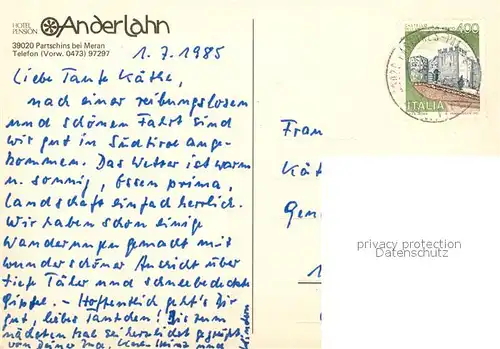 HOTEL
PENSION Anderlahn
39020 Partschins bei Meran
Telefon (Vorw. 0473) 97297
1.7.1985
Liebe Tante Käthe,
nach einer reibungslosen
und schönen Fahrt sind
wir gut in Südtirol ange-
kommen. Das Wetter ist warm
u. sonnig, Essen prima,
Landschaft einfach herrlich.
Wir haben schon einige
Wanderungen gemacht mit
wunderschöner Aussicht über
tiefe Täler und schneebedeckte
Gipfel. - Hoffentlich geht's Dir
gut, liebes Tantchen! Bis zum
nächsten Mal sei herzlichst gegrüßt
von Deiner Karl-Heinz und
Kindern
CASTELLO
400
ITALIA
Frau
Kät
Gen
1
privacy protection
Datenschutz